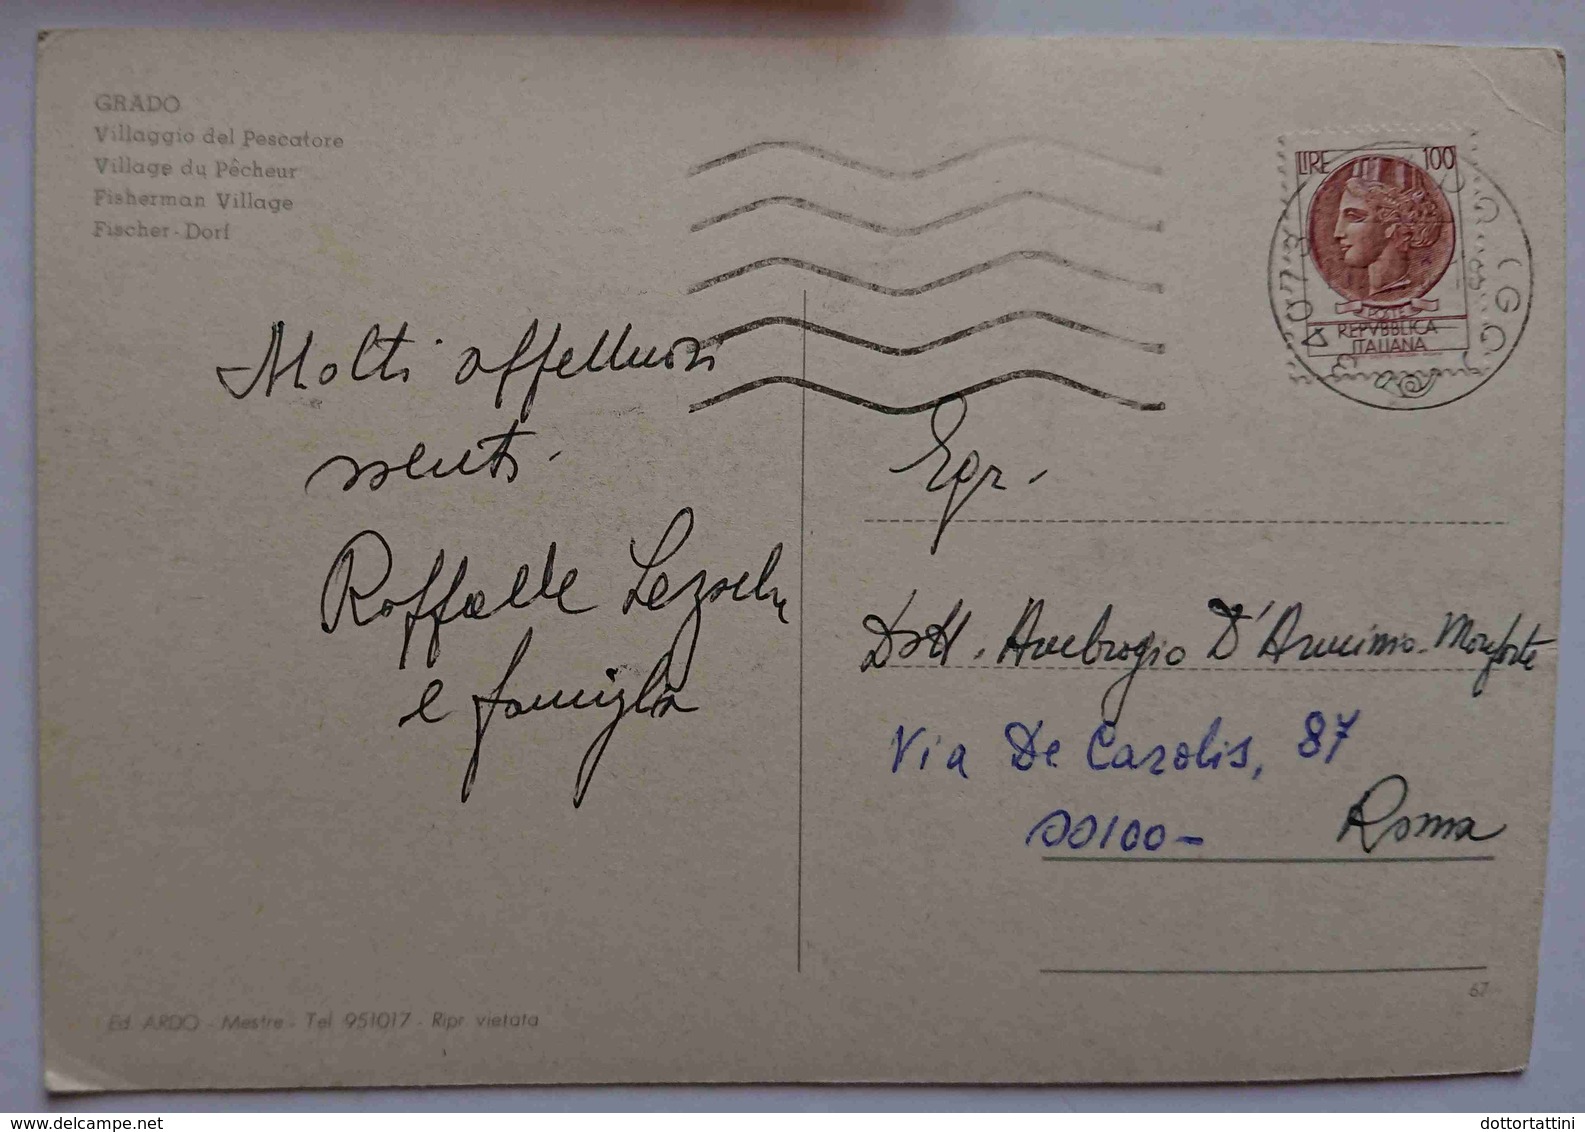 GRADO
Villaggio del Pescatore
Village du Pêcheur
Fisherman Village
Fischer-Dorf
LIRE 100
POSTE
REPVBBLICA
ITALIANA
Molti affettuosi
Egr.
Raffaele
e famiglia
Dott. Ambrogio D'Annunzio-Monforte
Via De Carolis, 87
00100-
Roma
67
Ed ARDO - Mestre - Tel 951017 - Ripr vietata
www.delcampe.net
dottortattini